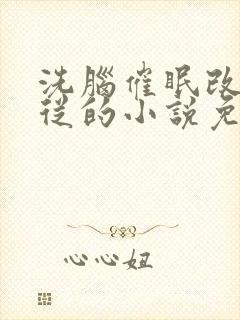 洗腦催眠改
從的小說免
心心妞